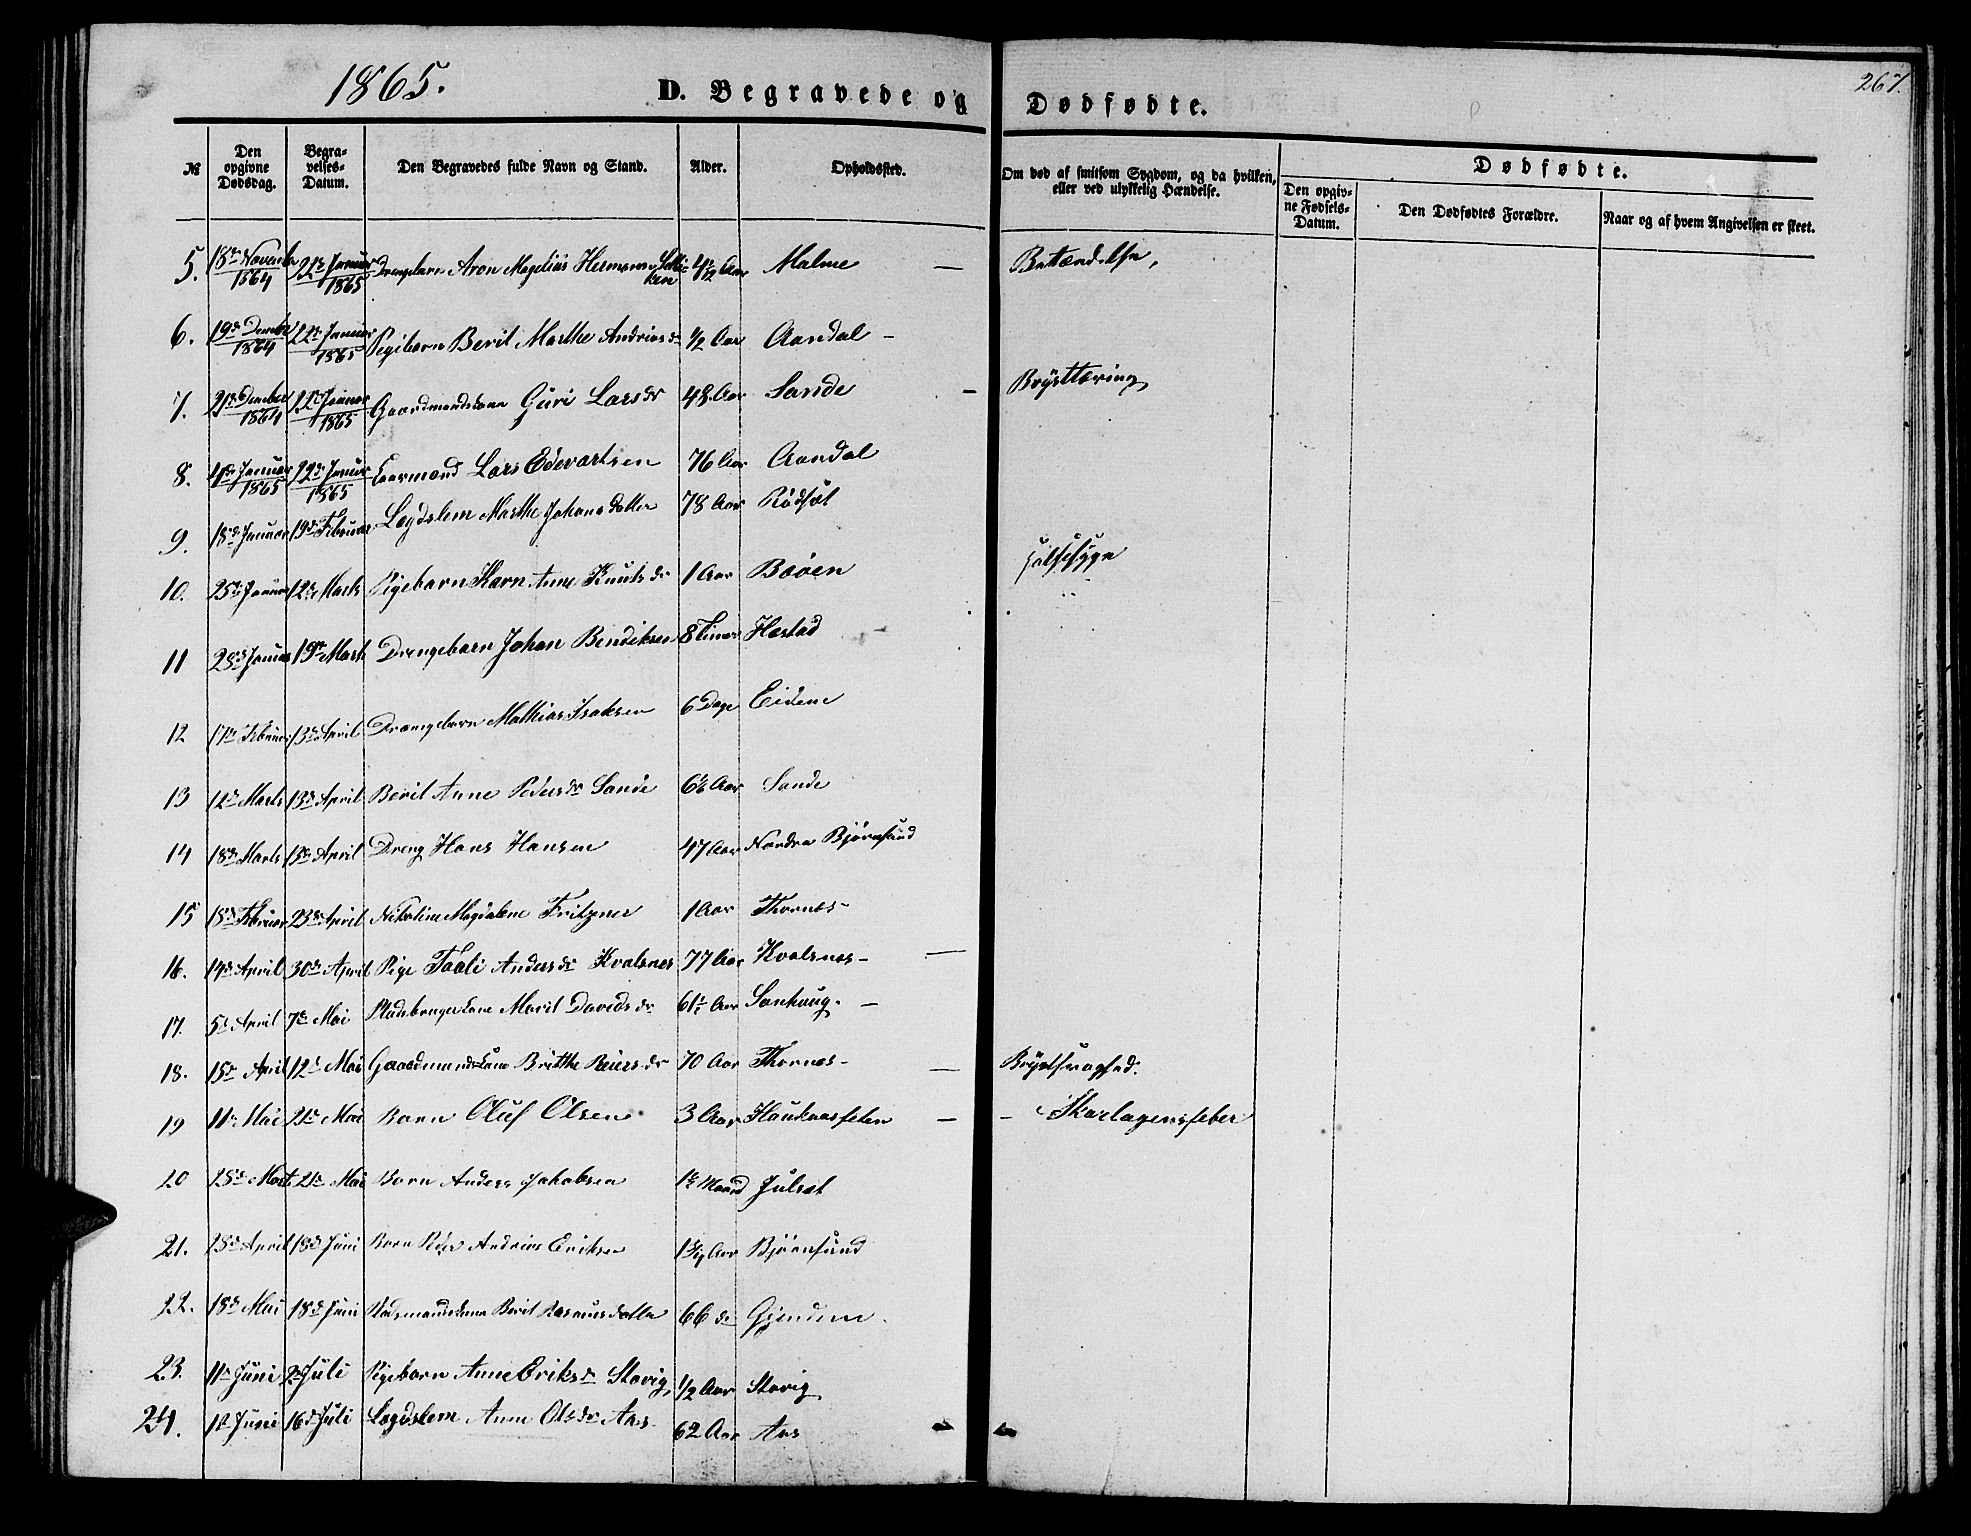 1865.
D. Begravede og Dødfødte.
267.
№ Den opgivne Dødsdag. Begravelses-Datum. Den Begravedes fulde Navn og Stand. Alder. Opholdssted. Om død af smitsom Sygdom, og da hvilken, eller ved ulykkelig Hændelse. Dødfødte.
Den opgivne Fødsels-Datum. Den Dødfødtes Forældre. Naar og af hvem Angivelsen er skeet.
5. 18de November 1864 22de Januar 1865 Drengebarn Aron Magelius Hermansen Aar Malme — Betændelse,
6. 19de 1864 22de Januar 1865 Pigebarn Berit Marthe Andriasdr 1/2 Aar Aandal —
7. 21de 1864 22de Januar 1865 Gaardmandskone Guri Larsdr 48 Aar Sande — Brysttæring
8. 4de Januar 1865 22de Januar 1865 Kaarmand Lars Edevartsen 76 Aar Aandal
9. 18de Januar 19de Februar Lægdslem Marthe Johansdatter 78 Aar Rødsæt
10. 25de Januar 12te Marts Pigebarn Karn Anne Knutsdr 1 Aar Bøen Halssyge
11 28de Januar 19de Marts Drengebarn Johan Bendiksen 8 Timer Hæstad
12 17de Februar 13de April Drengebarn Mathias Isaksen 6 Dage Eidem
13 12te Marts 13de April Berit Anne Pedersdr Sande Aar Sande
14 18de Marts 13de April Dreng Hans Hansen 47 Aar Nordre Bjørnsund
15 18de Februar 23de April Nikoline Magdalene Fritzner 1 Aar Thornes —
16. 14de April 30de April Pige Taali Andersdr Kvalsnes 77 Aar Kvalsnes —
17. 5te April 7de Mai Pladsbrugerkone Marit Davidsdr Aar Sanhaug. —
18. 15de April 12te Mai Gaardmandskone Britthe Reiersdr 70 Aar Thornes — Brystsvaghed.
19 11te Mai 21de Mai Barn Oluf Olsen 3 Aar Haukaasselen — — Skarlagensfeber
20 25de Marts 21de Mai Barn Anders Jakobsen Maaned Julset
21. 28de April 18de Juni Barn Peder Andrias Eriksen Aar Bjørnsund
22. 18de Mai 18de Juni Pladsmandskone Berit Rasmusdatter 66 do Gjendem.
23. 11te Juni 2den Juli Pigebarn Anne Eriksdr Stavig, 1/2 Aar Stavig
24. 1ste Juni 16de Juli Lægdslem Anne Olsdr Aas 62 Aar Aas